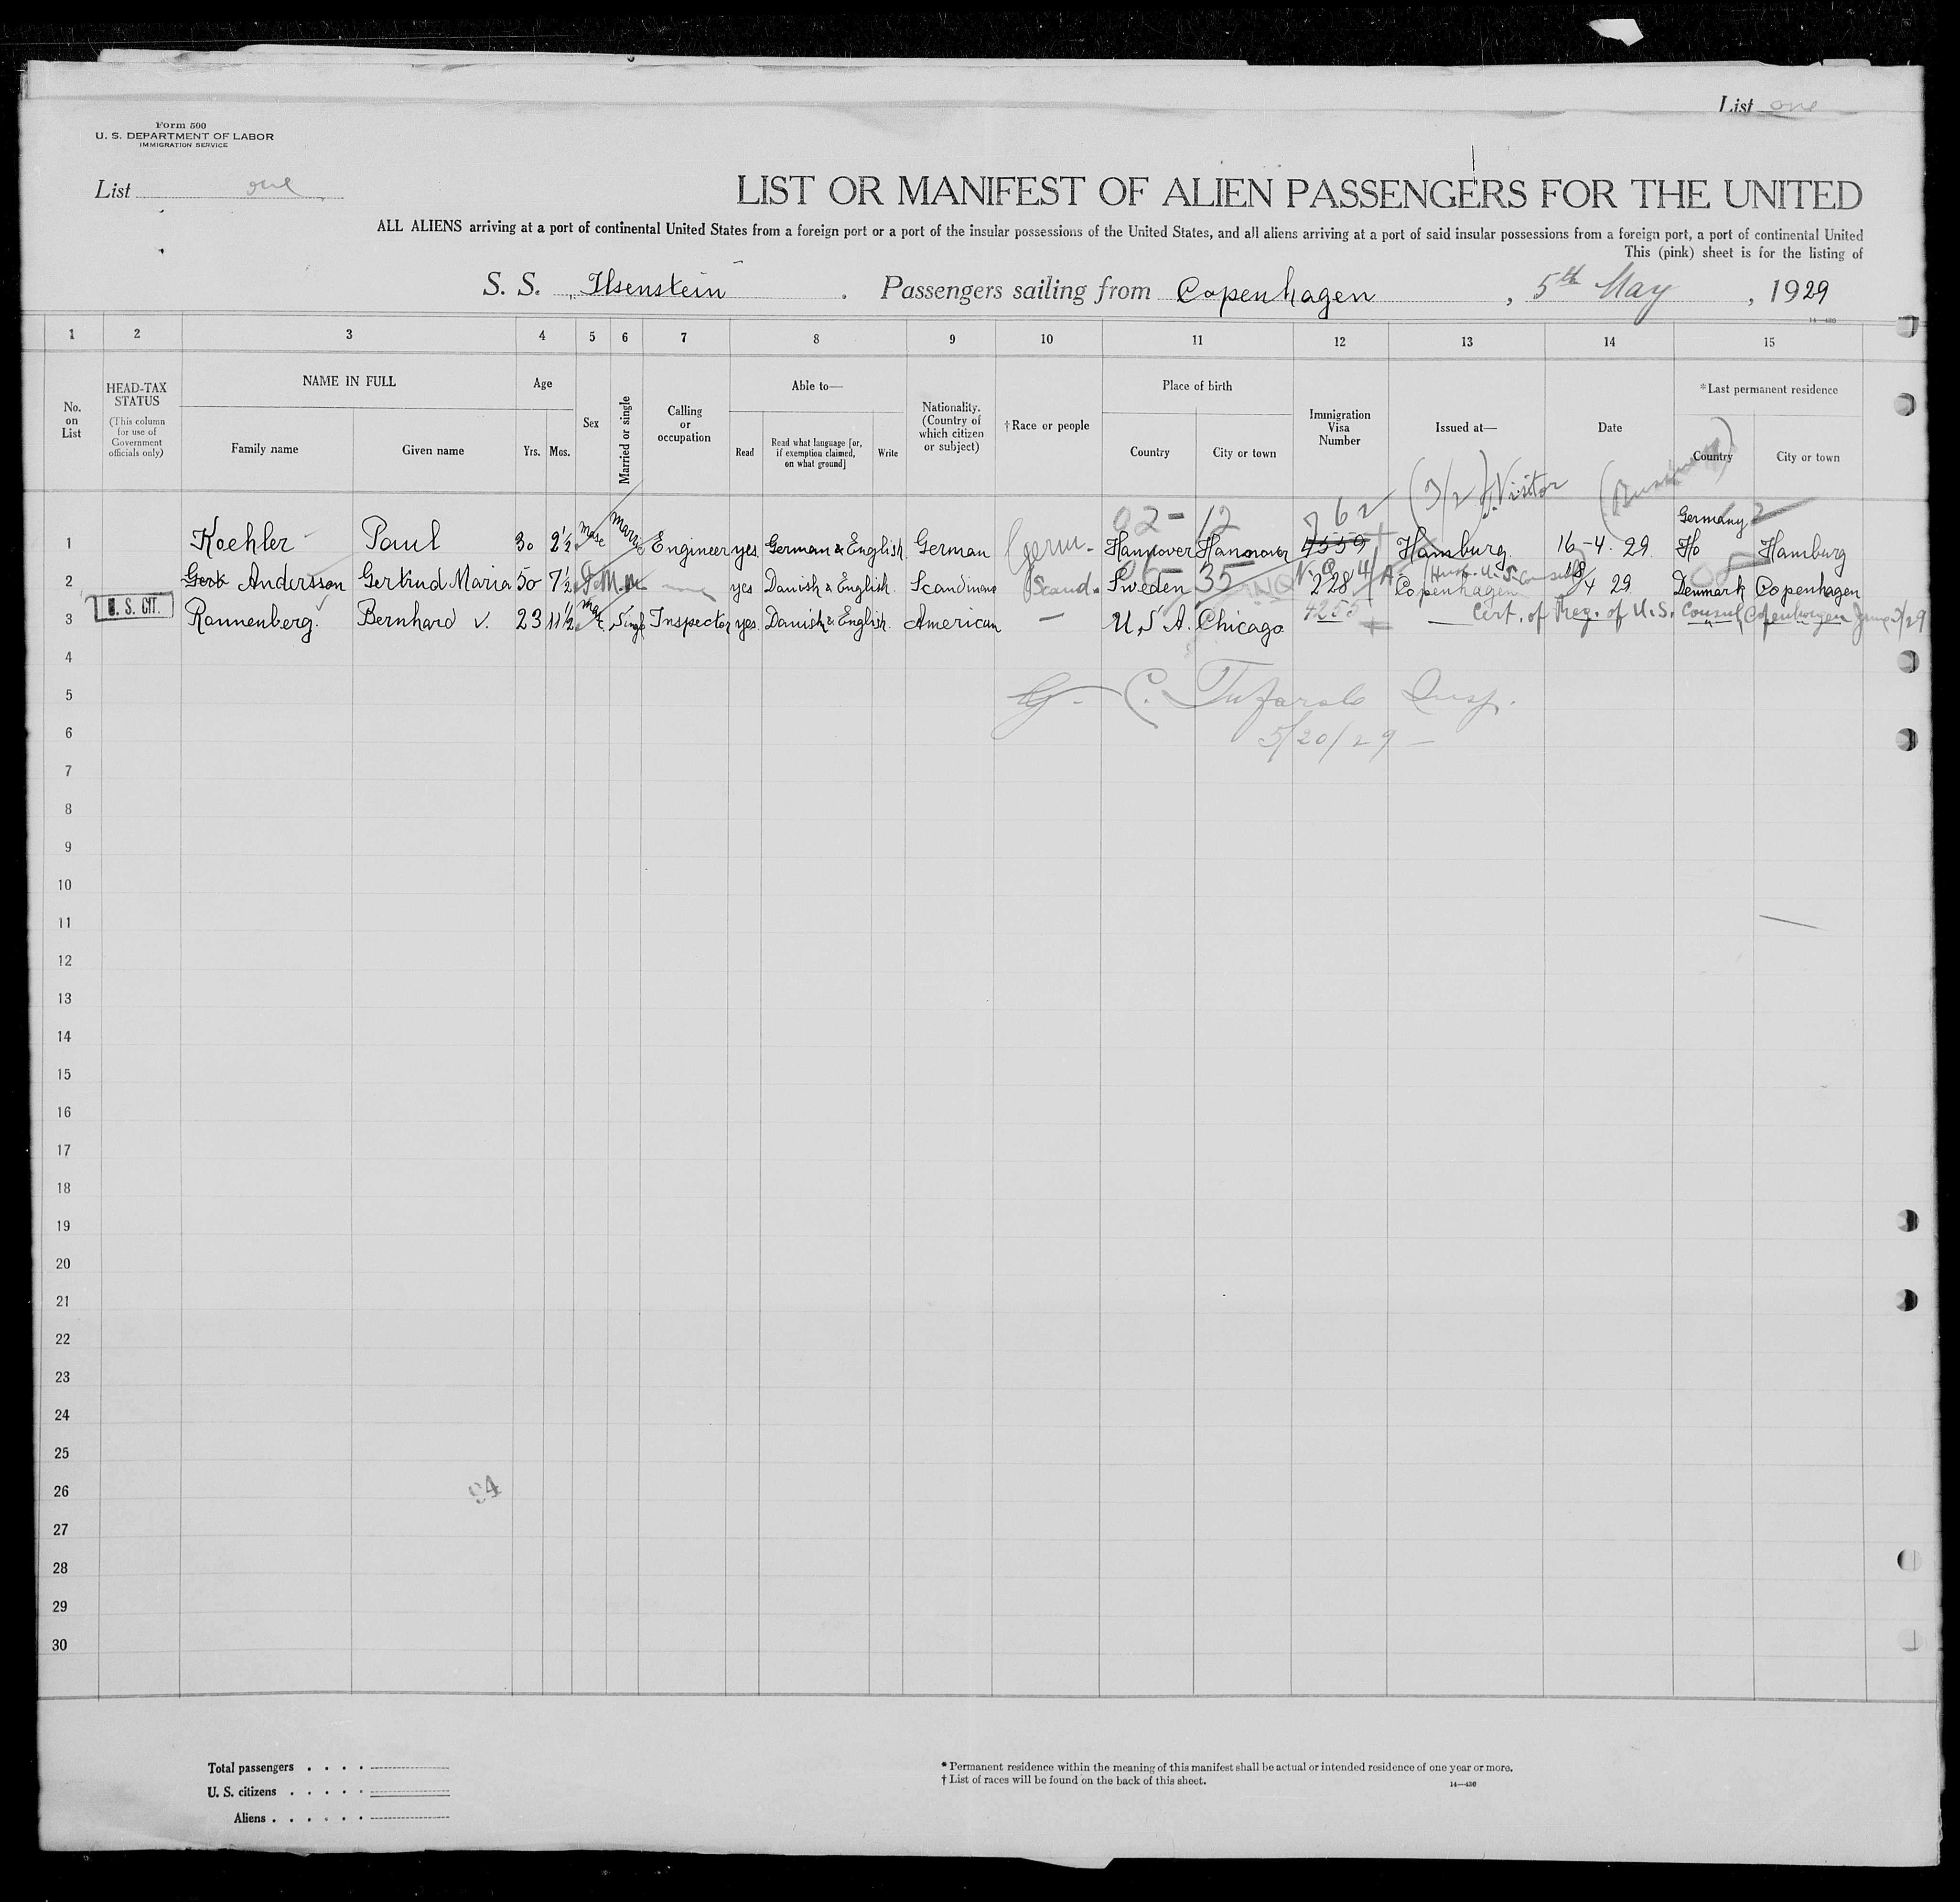 List one
Form 500
U. S. DEPARTMENT OF LABOR
IMMIGRATION SERVICE
List one
LIST OR MANIFEST OF ALIEN PASSENGERS FOR THE UNITED
ALL ALIENS arriving at a port of continental United States from a foreign port or a port of the insular possessions of the United States, and all aliens arriving at a port of said insular possessions from a foreign port, a port of continental United
This (pink) sheet is for the listing of
S. S. Ilsenstein . Passengers sailing from Copenhagen , 5th May , 1929
14—430
1 2 3 4 5 6 7 8 9 10 11 12 13 14 15
No. on List
HEAD-TAX STATUS
(This column for use of Government officials only)
NAME IN FULL
Family name Given name
Age
Yrs. Mos.
Sex
Married or single
Calling or occupation
Able to—
Read
Read what language [or, if exemption claimed, on what ground]
Write
Nationality. (Country of which citizen or subject)
†Race or people
Place of birth
Country City or town
Immigration Visa Number
Issued at—
Date
*Last permanent residence
Country City or town
02-12 762 (3/2) Visitor Germany
1 Koehler Paul 30 2½ male Engineer yes German & English. German Germ- Hannover Hannover 4559 Hamburg. 16-4. 29. Ho Hamburg
2 Gert Andersson Gertrud Maria 50 7½ none yes Danish & English. Scand. Sweden 35 N.Q. 2284 Copenhagen 18/4 29. Denmark Copenhagen
U. S. CIT.
3 Rannenberg. Bernhard v. 23 11½ Singl Inspector yes. Danish & English. American — U.S.A. Chicago 4255 Cert. of Reg. of U.S. Consul, Copenhagen
4
5 Insp.
6 5/20/29 —
7
8
9
10
11
12
13
14
15
16
17
18
19
20
21
22
23
24
25
26 94
27
28
29
30
Total passengers . . . .
U. S. citizens . . . . .
Aliens . . . . . .
* Permanent residence within the meaning of this manifest shall be actual or intended residence of one year or more.
† List of races will be found on the back of this sheet.
14—430